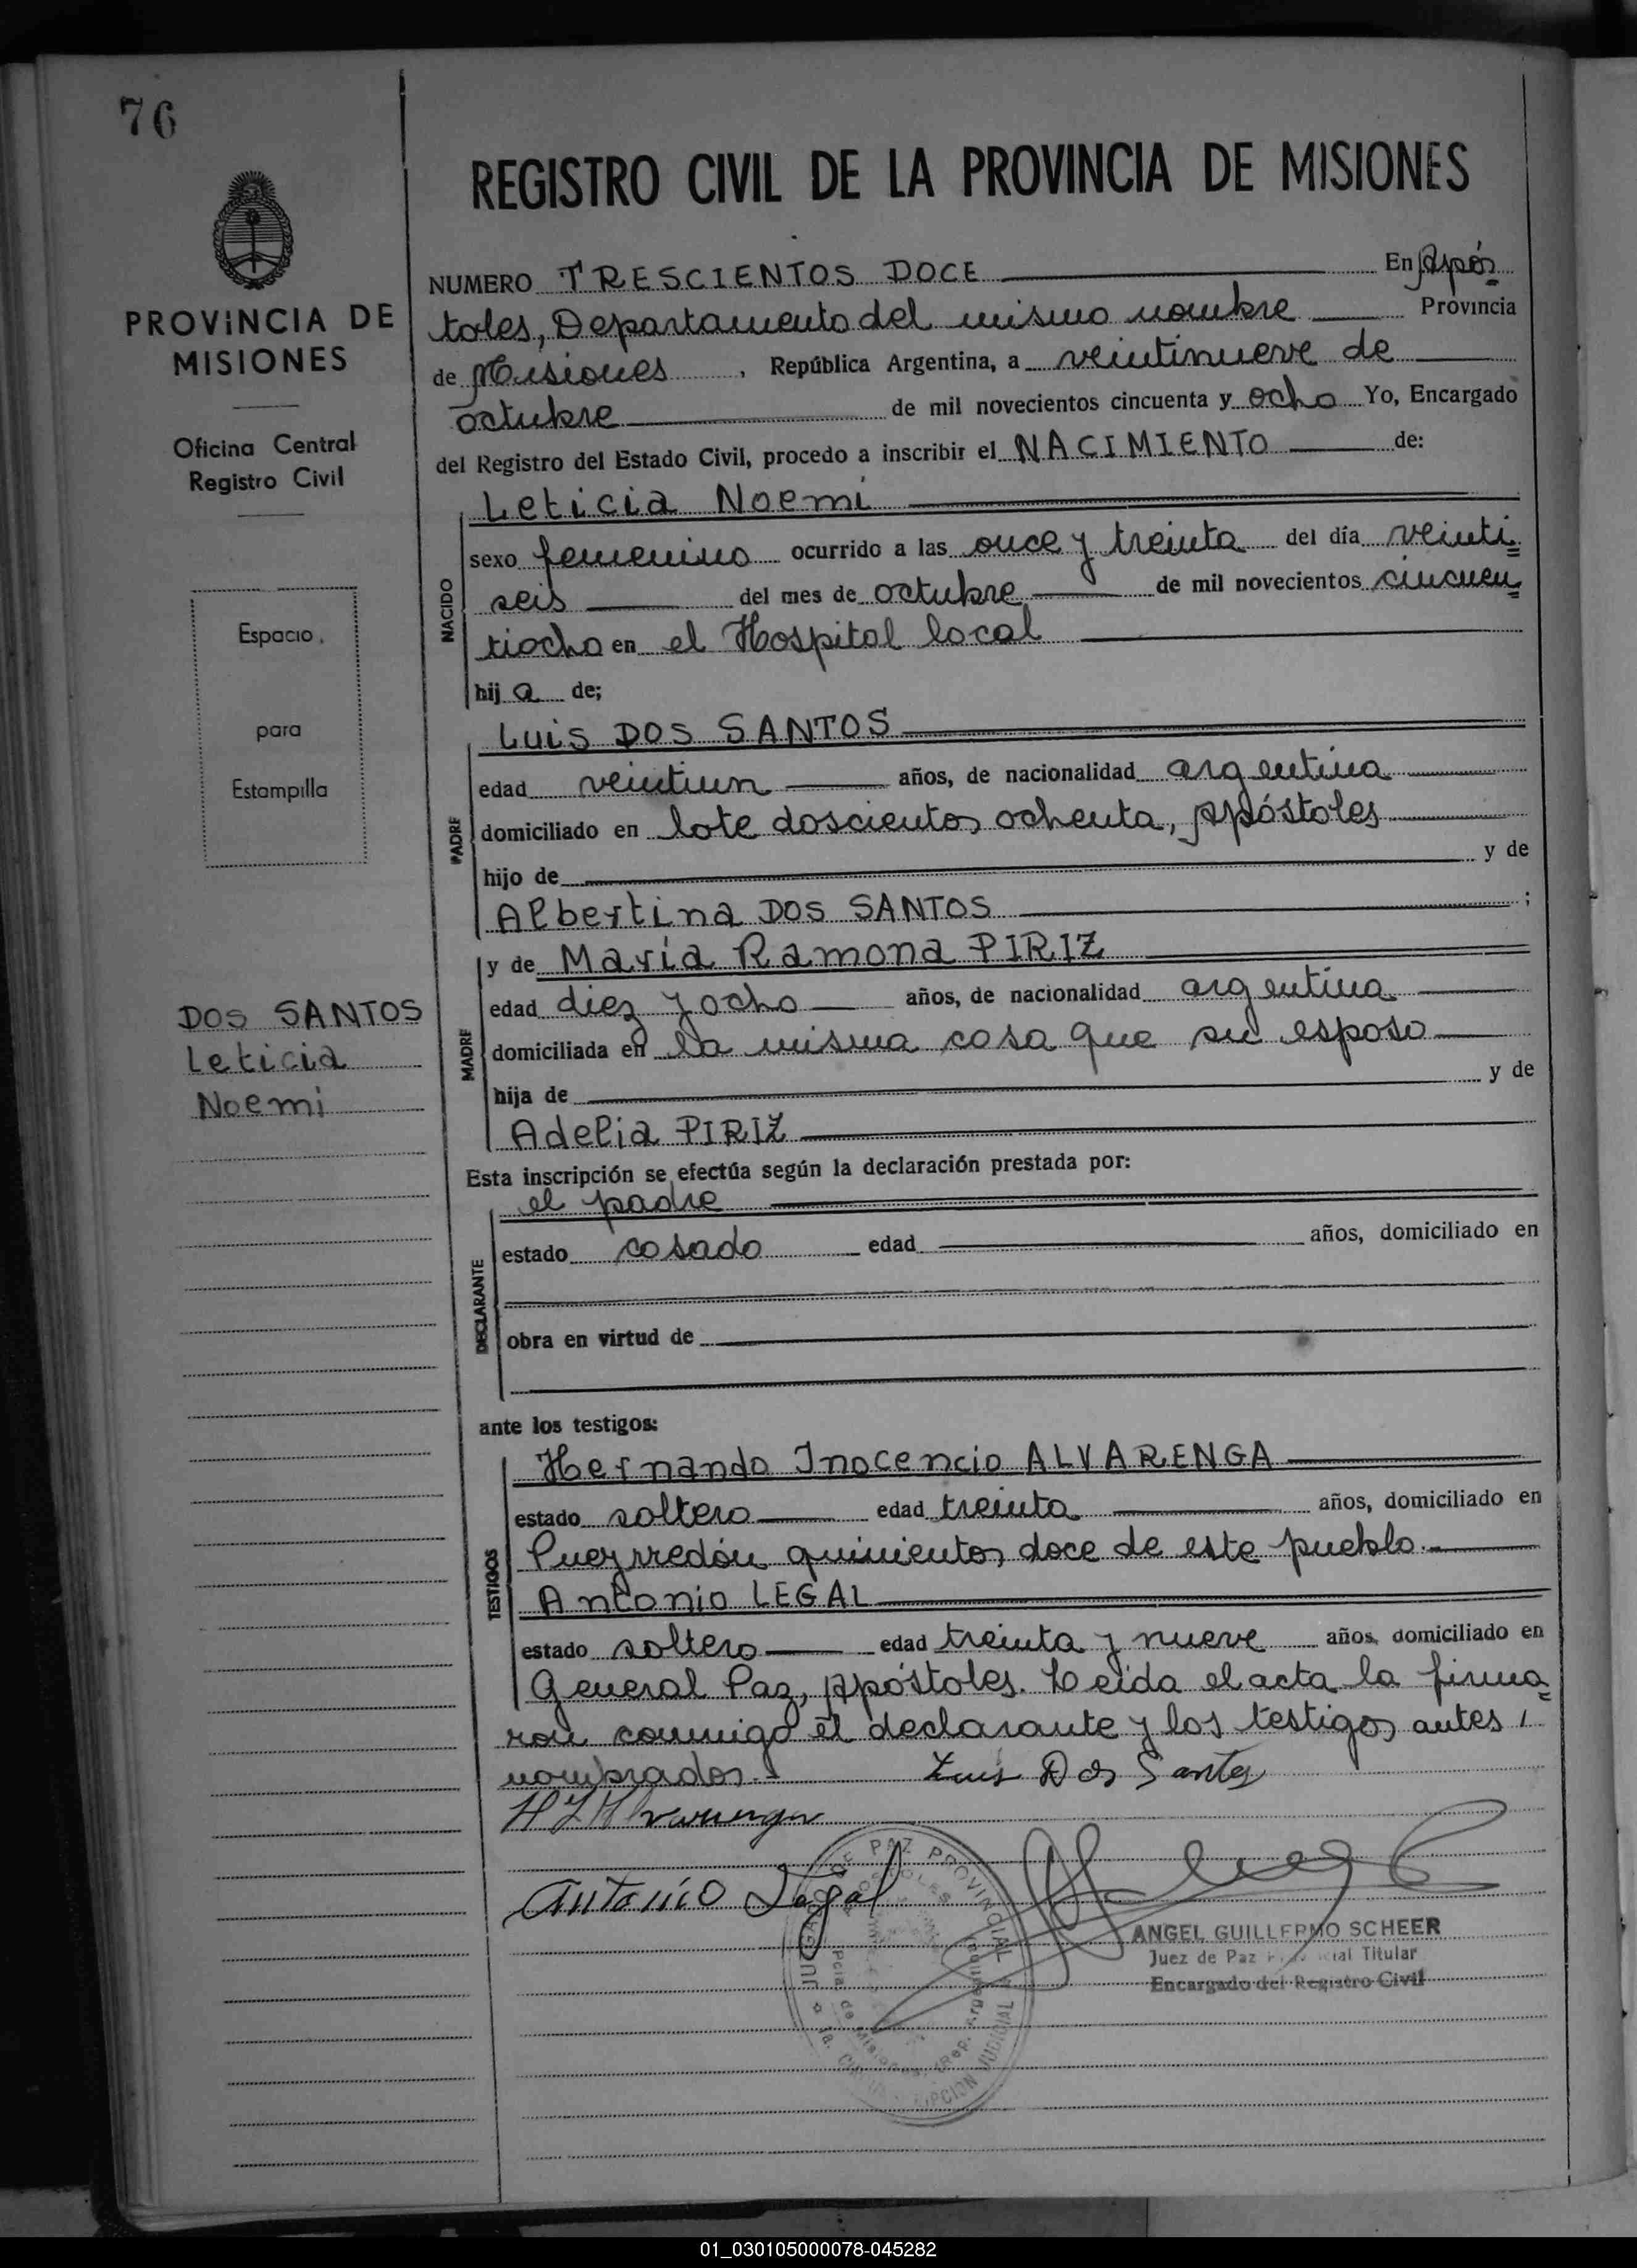 76
PROVINCIA DE
MISIONES
Oficina Central
Registro Civil
Espacio
para
Estampilla
DOS SANTOS
Leticia
Noemi
REGISTRO CIVIL DE LA PROVINCIA DE MISIONES
NUMERO TRESCIENTOS DOCE En Após
toles, Departamento del mismo nombre Provincia
de Misiones, República Argentina, a veintinueve de
octubre de mil novecientos cincuenta y ocho Yo, Encargado
del Registro del Estado Civil, procedo a inscribir el NACIMIENTO de:
NACIDO
Leticia Noemi
sexo femenino ocurrido a las once y treinta del día veinti=
seis del mes de octubre de mil novecientos cincuen=
tiocho en el Hospital local
hija de;
PADRE
Luis DOS SANTOS
edad veintiun años, de nacionalidad argentina
domiciliado en lote doscientos ochenta, Apóstoles
hijo de y de
Albertina DOS SANTOS ;
MADRE
y de María Ramona PIRIZ
edad diez y ocho años, de nacionalidad argentina
domiciliada en la misma casa que su esposo
hija de y de
Adelia PIRIZ
Esta inscripción se efectúa según la declaración prestada por:
DECLARANTE
el padre
estado casado edad años, domiciliado en
obra en virtud de
ante los testigos:
TESTIGOS
Hernando Inocencio ALVARENGA
estado soltero edad treinta años, domiciliado en
Pueyrredón quinientos doce de este pueblo.
Antonio LEGAL
estado soltero edad treinta y nueve años, domiciliado en
General Paz, Apóstoles. Leída el acta la firma=
ron conmigo el declarante y los testigos antes
nombrados.-
Luis Dos Santos
H I Alvarenga
Antonio Legal
JUZGADO DE PAZ PROVINCIAL
Pcia. de Misiones (Rep. Argentina)
ANGEL GUILLERMO SCHEER
Juez de Paz Titular
Encargado del Registro Civil
01_030105000078-045282